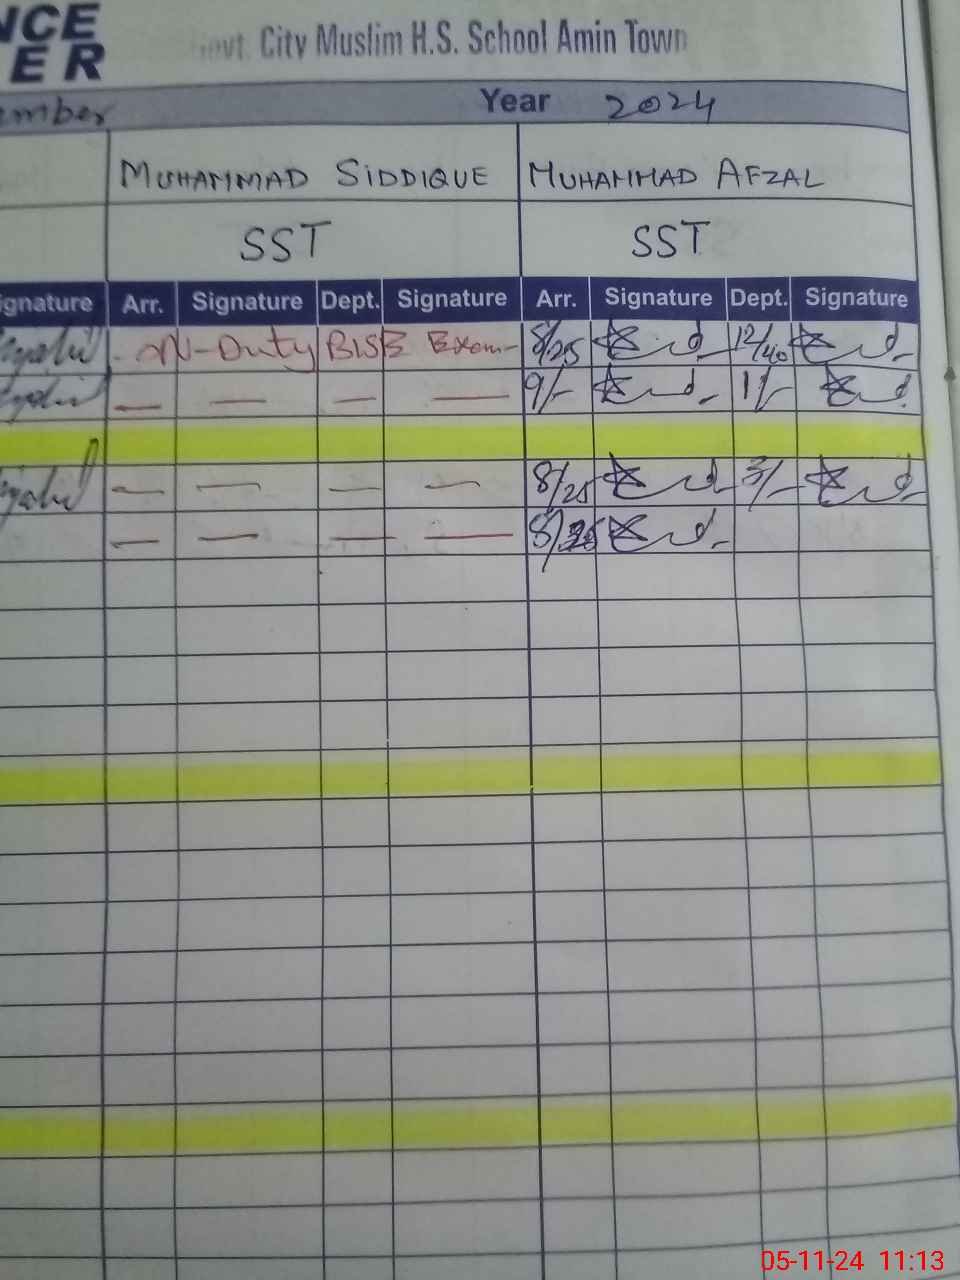 NCE
ER
Govt. City Muslim H.S. School Amin Town
ember Year 2024
MUHAMMAD SIDDIQUE MUHAMMAD AFZAL
SST SST
ignature Arr. Signature Dept. Signature Arr. Signature Dept. Signature
oN-Duty BISE Exam 8/25 12/40
— — — — 9/- 1/-
— — — — 8/25 3/-
— — — —
05-11-24 11:13